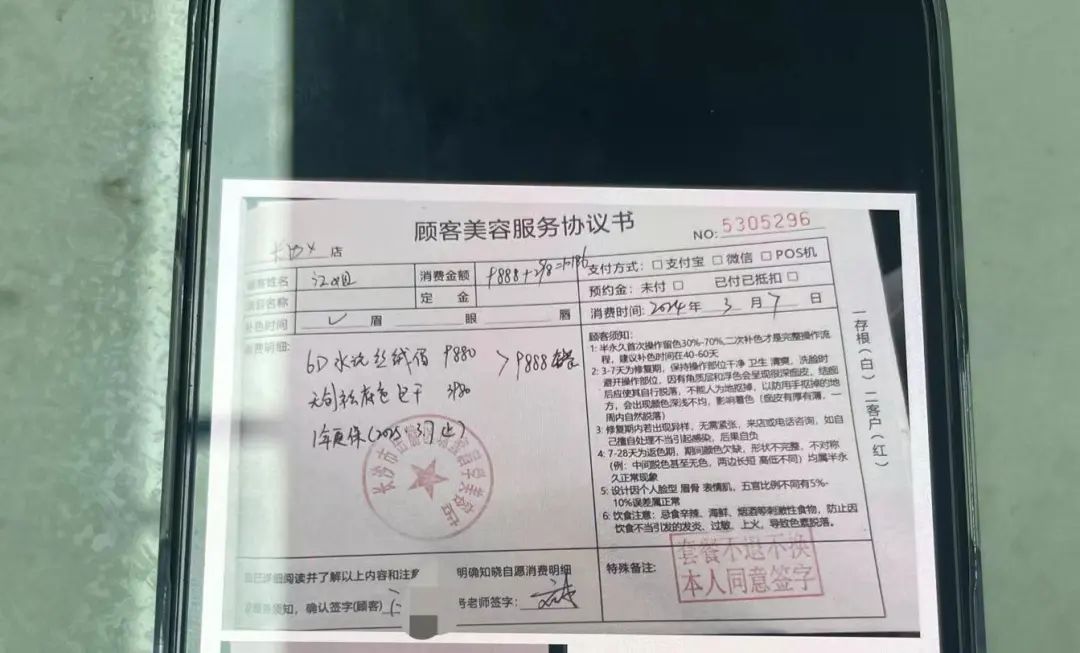 顾客美容服务协议书
NO: 5305296
店
顾客姓名
消费金额
9888+298=10186
支付方式: □支付宝 □微信 □POS机
美容名称
定 金
预约金: 未付 □ 已付已抵扣 □
消费时间: 2024年 3 月 7 日
补色时间 ✓ 眉 眼 唇
消费明细:
6D 水沈丝绒眉 9880
>9888
3980
1年更保(2025年3月止)
长沙市
顾客须知:
1: 半永久首次操作留色30%-70%,二次补色才是完整操作流
程, 建议补色时间在40-60天
2: 3-7天为修复期, 保持操作部位干净 卫生 清爽, 洗脸时
避开操作部位, 因有角质层和浮色会呈现很深痂皮, 结痂
后应使其自行脱落, 不能人为地抠掉, 以防用手抠掉的地
方, 会出现颜色深浅不均, 影响着色 (痂皮有厚有薄, 一
周内自然脱落)
3: 修复期内若出现异样, 无需紧张, 来店或电话咨询, 如自
己擅自处理不当引起感染, 后果自负
4: 7-28天为返色期, 期间颜色欠缺, 形状不完整, 不对称
(例: 中间脱色甚至无色, 两边长短 高低不同) 均属半永
久正常现象
5: 设计因个人脸型 眉骨 表情肌, 五官比例不同有5%-
10%误差属正常
6: 饮食注意: 忌食辛辣、海鲜、烟酒等刺激性食物, 防止因
饮食不当引发的发炎、过敏、上火, 导致色素脱落。
一存根(白) 二客户(红)
已详细阅读并了解以上内容和注
明确知晓自愿消费明细
须知, 确认签字(顾客)
老师签字:
特殊备注:
套餐不退不换
本人同意签字